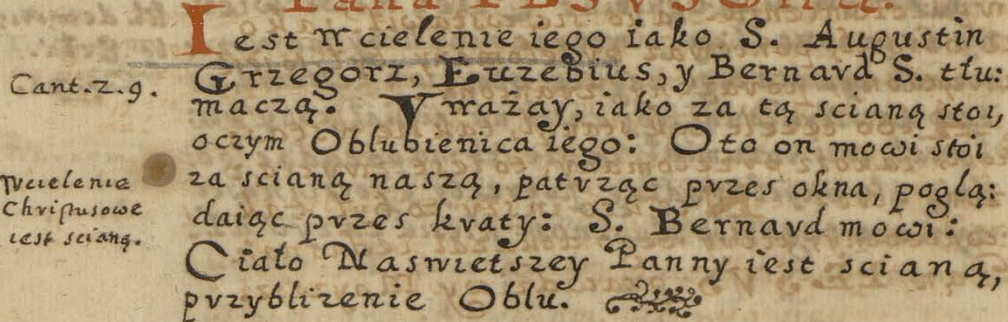 Iest wcielenie iego iako S. Augustin
Grzegorz, Euzebius, y Bernard S. tłu:
maczą: Vważay, iako za tą scianą stoi,
oczym Oblubienica iego: Oto on mowi stoi
za scianą naszą, patrząc przes okna, poglą:
daiąc przes kraty: S. Bernard mowi:
Ciało Naswietszey Panny iest scianą,
przyblizenie Oblu.
Cant. 2. 9.
Wcielenie
Christusowe
iest scianą.